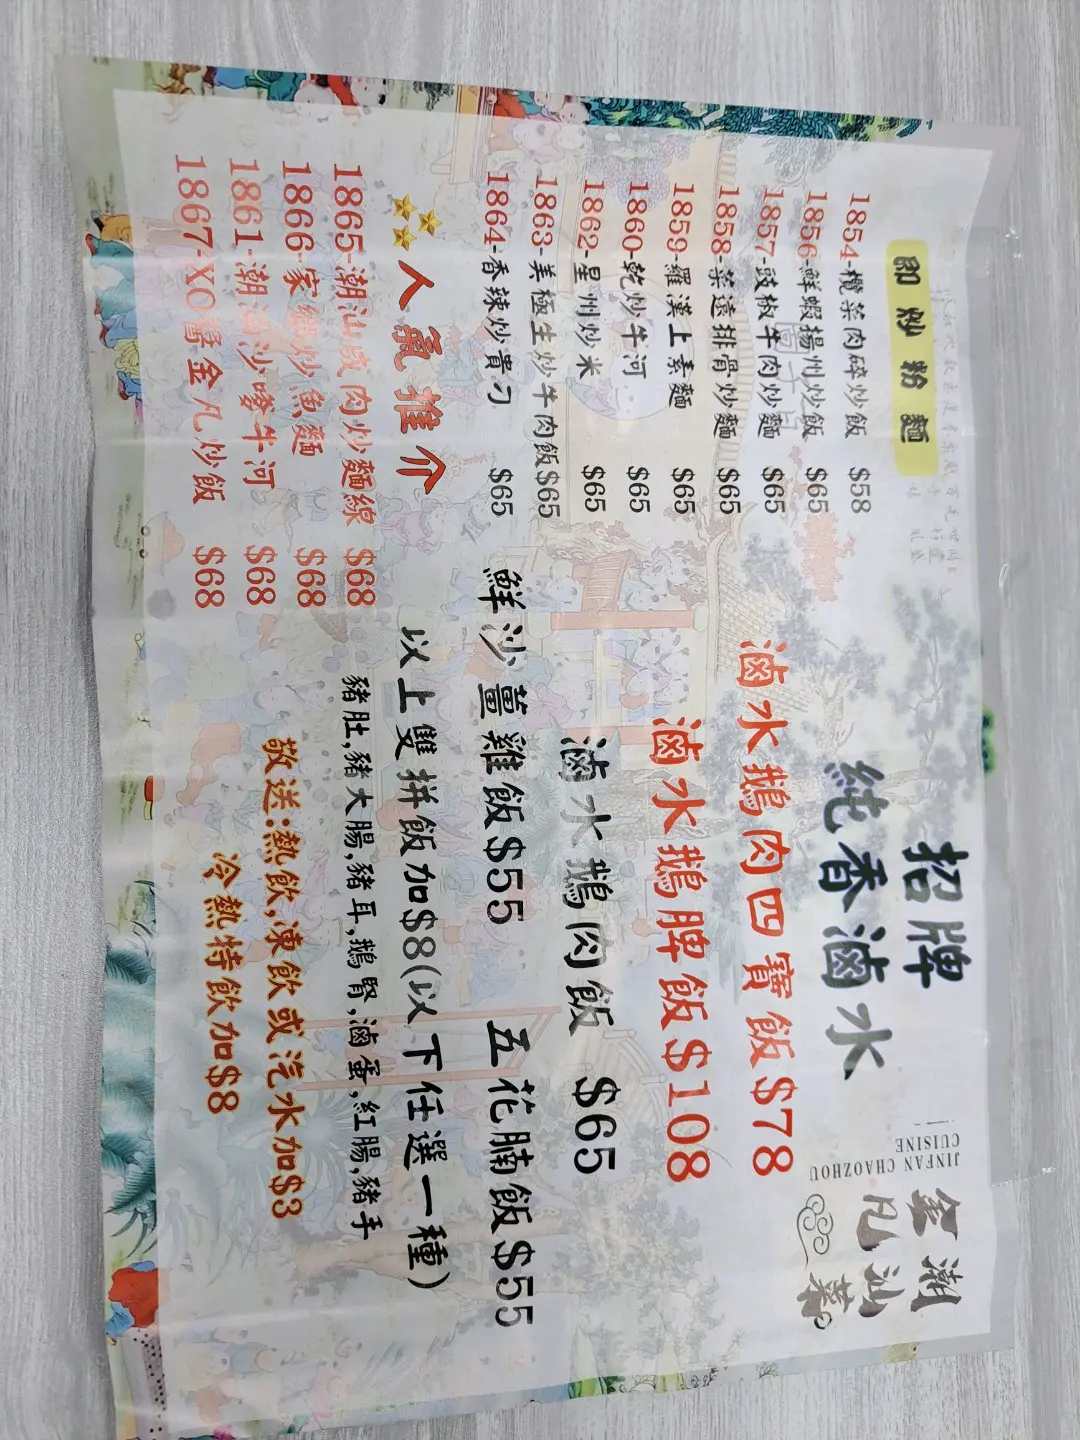 即炒粉麵
1854-欖菜肉碎炒飯 $58
1856鮮蝦揚州炒飯 $65
1857-豉椒牛肉炒麵 $65
1858-菜遠排骨炒麵 $65
1859-羅漢上素麵 $65
1860-乾炒牛河 $65
1862-星州炒米 $65
1863-美極生炒牛肉飯$65
1864-香辣炒貴刁 $65
人氣推介
1865-潮汕咸肉炒麵線 $68
1866-家鄉炒魚麵 $68
1861-潮汕沙嗲牛河 $68
1867-XO醬金凡炒飯 $68
招牌
純香滷水
JINFAN CHAOZHOU
CUISINE
金凡
潮汕菜
滷水鵝肉四寶飯$78
滷水鵝脾飯$108
滷水鵝肉飯 $65
鮮沙薑雞飯$55 五花腩飯$55
以上雙拼飯加$8(以下任選一種)
豬肚,豬大腸,豬耳,鵝腎,滷蛋,紅腸,豬手
敬送:熱飲,凍飲或汽水加$3
冷熱特飲加$8